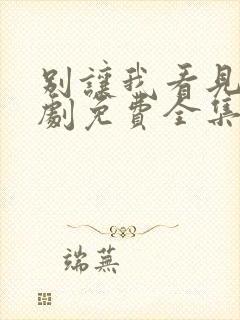 別讓我看見
劇免費全集
端蕪